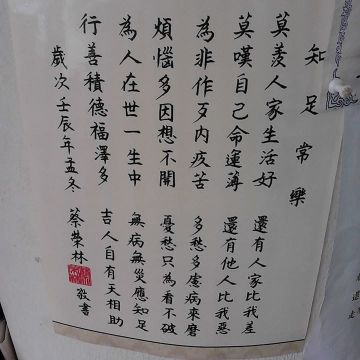 知足常樂
莫羨人家生活好
還有人家比我差
莫嘆自己命運薄
還有他人比我惡
為非作歹內疚苦
多愁多慮病來磨
煩惱多因想不開
憂愁只為看不破
為人在世一生中
無病無災應知足
行善積德福澤多
吉人自有天相助
歲次壬辰年孟冬
蔡榮林
敬書